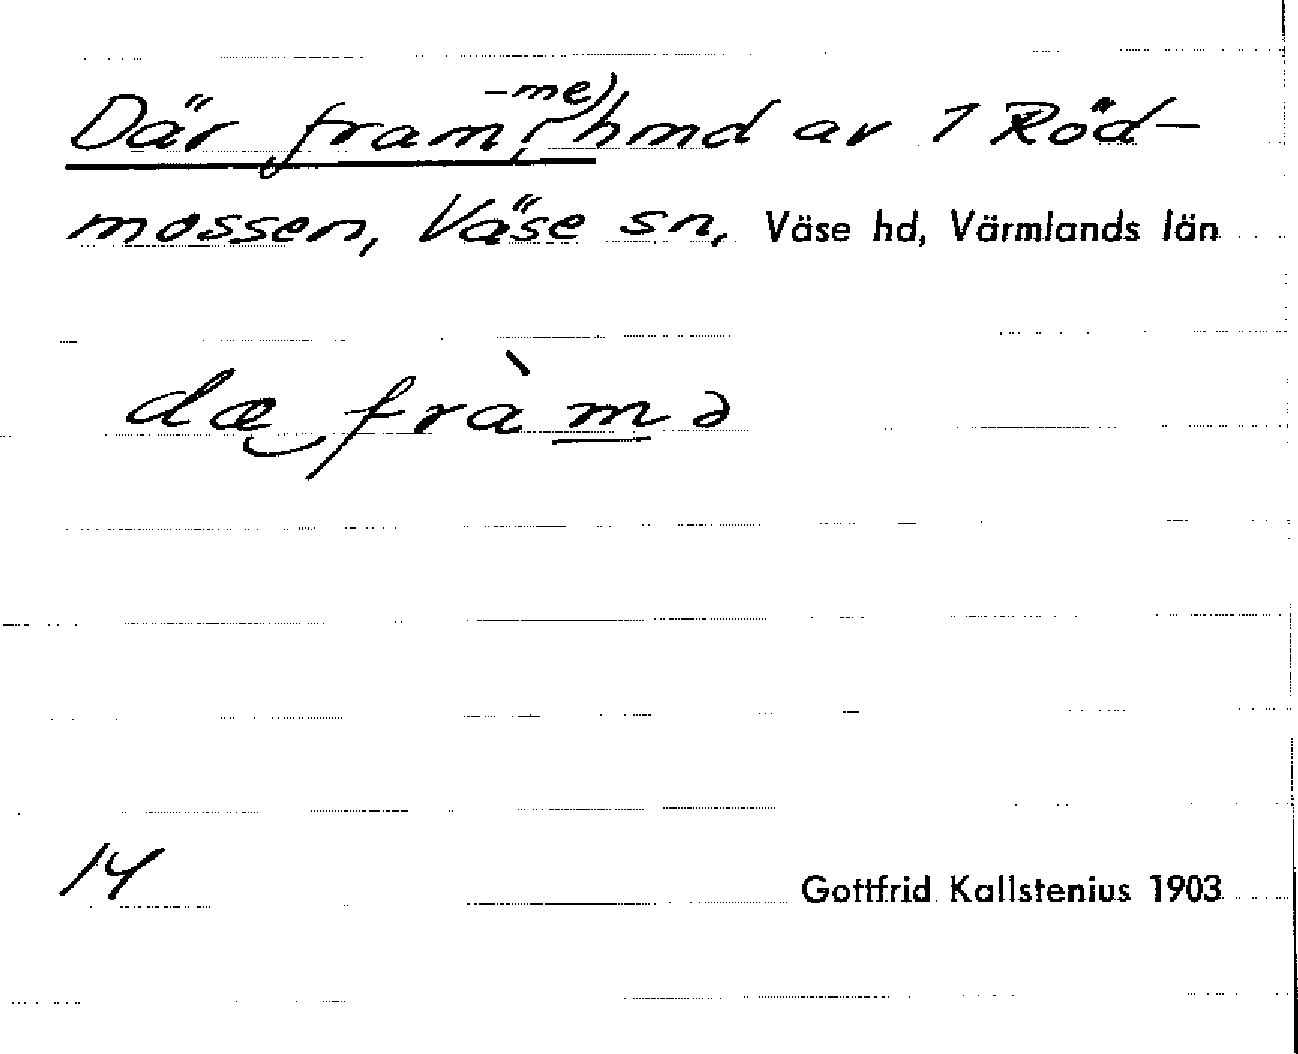 Där fram(-me), hmd av 1 Röd-
mossen, Väse sn, Väse hd, Värmlands län
dæ fràmə
14
Gottfrid Kallstenius 1903